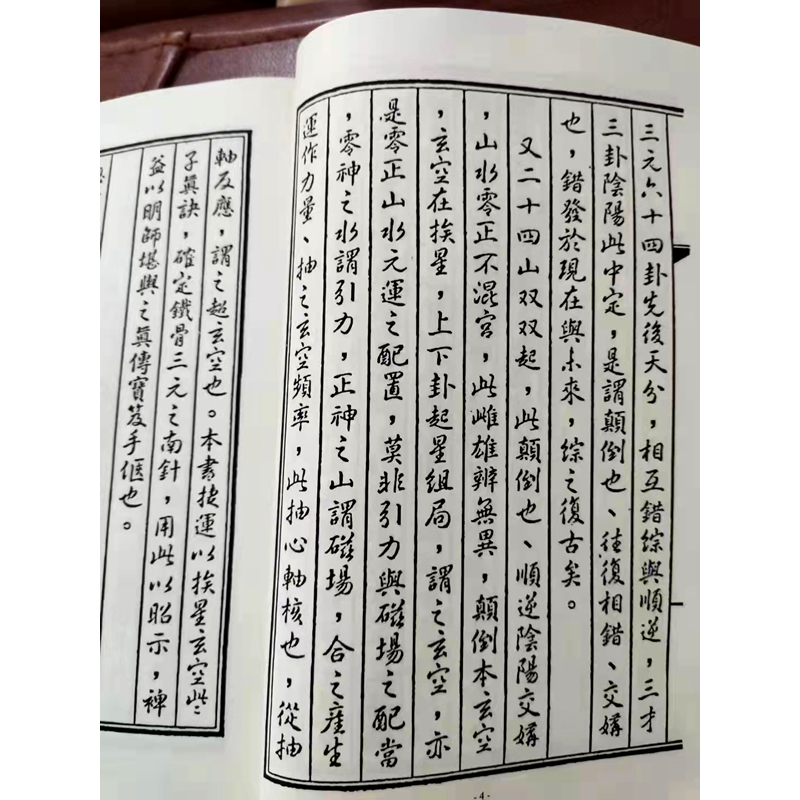 三元六十四卦先後天分，相互錯綜與順逆，三才
三卦陰陽此中定，是謂顛倒也、往復相錯、交媾
也，錯發於現在與未來，綜之復古矣。
又二十四山双双起，此顛倒也、順逆陰陽交媾
，山水零正不混宮，此雌雄辨無異，顛倒本玄空
，玄空在挨星，上下卦起星組局，謂之玄空，亦
是零正山水元運之配置，莫非引力與磁場之配當
，零神之水謂引力，正神之山謂磁場，合之產生
運作力量、抽之玄空頻率，此抽心軸核也，從抽
軸反應，謂之超玄空也。本書捷運以挨星玄空些
子眞訣，確定鐵骨三元之南針，用此以昭示，裨
益以明師堪輿之眞傳寶笈手偃也。
-4-